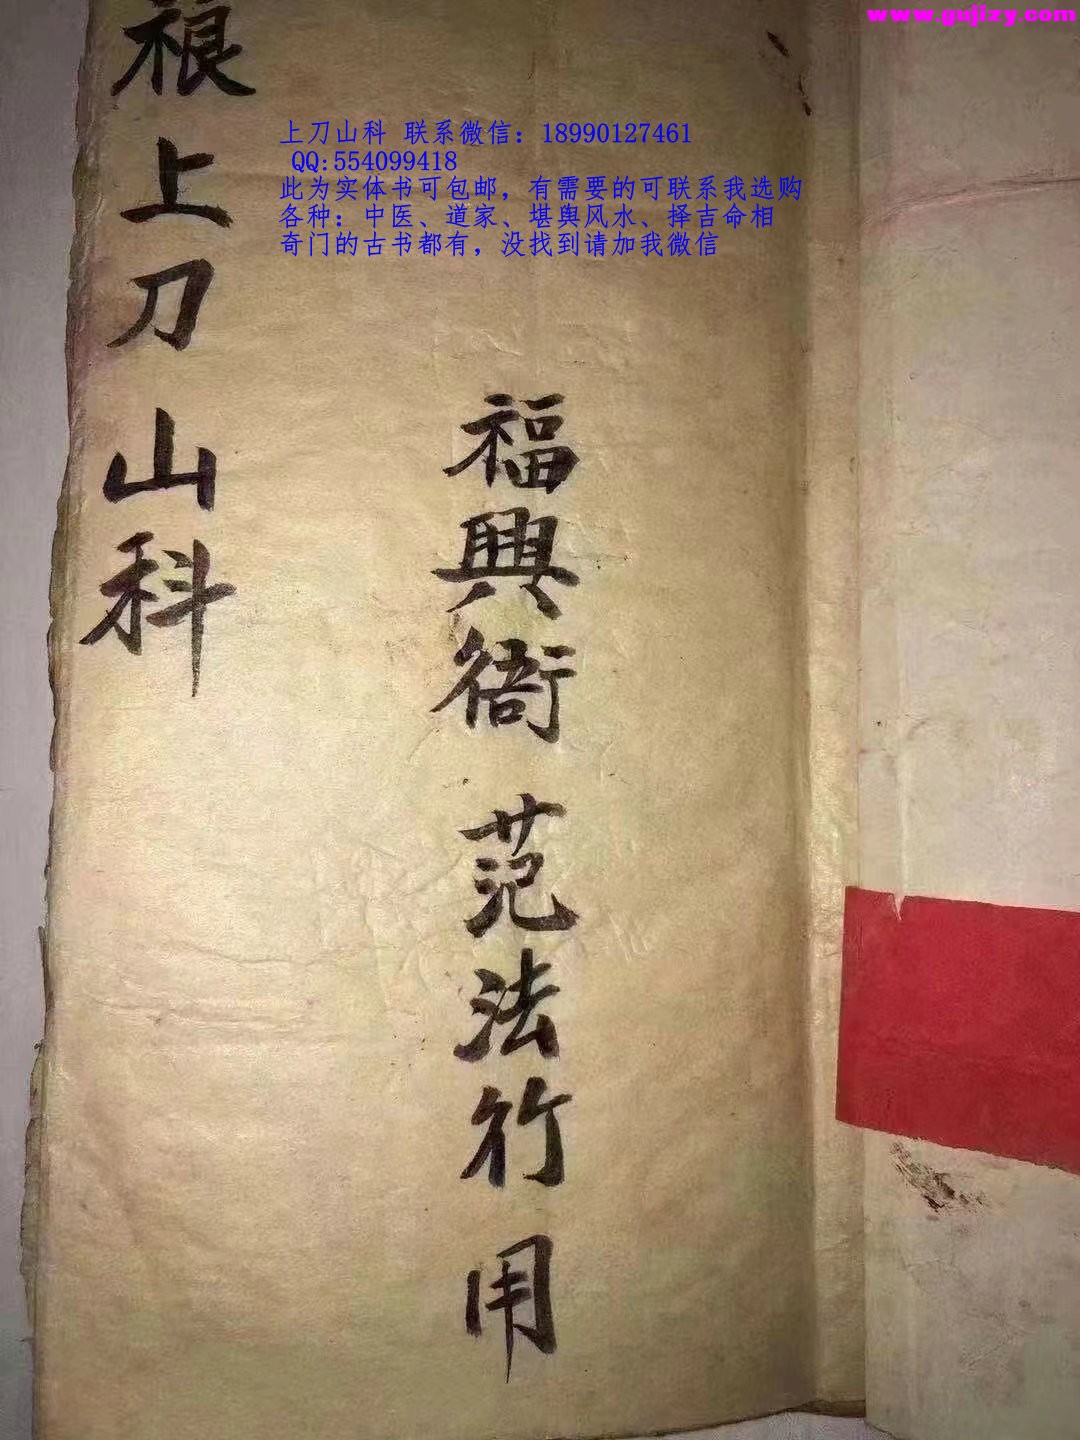 www.gujizy.com
上刀山科 联系微信：18990127461
QQ:554099418
此为实体书可包邮，有需要的可联系我选购
各种：中医、道家、堪舆风水、择吉命相
奇门的古书都有，没找到请加我微信
福興衙 范法竹用
上刀山科